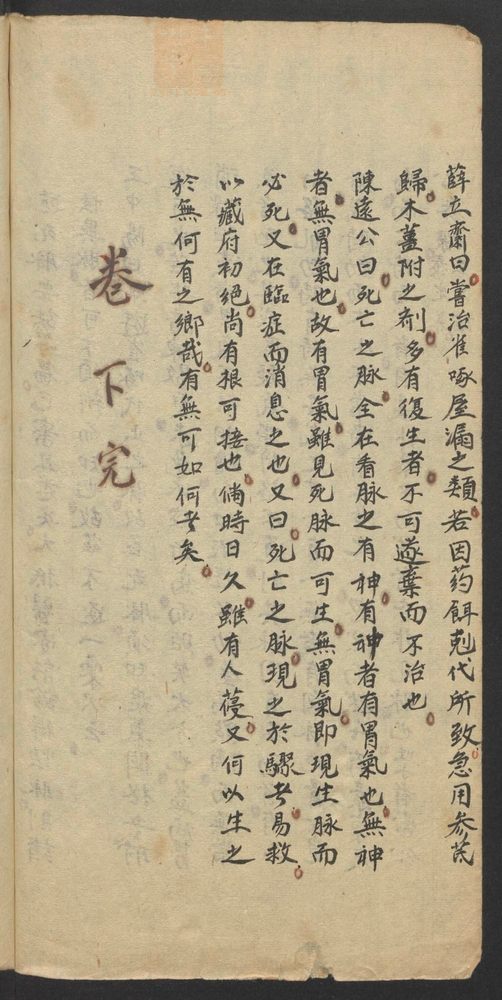 薛立齋曰嘗治雀啄屋漏之類若因药餌剋代所致急用参芪
歸木薑附之剤多有復生者不可遂棄而不治也
陳遠公曰死亡之脉全在看脉之有神有神者有胃氣也無神
者無胃氣也故有胃氣雖見死脉而可生無胃氣即現生脉而
必死又在臨症而消息之也又曰死亡之脉現之於驟者易救
以藏府初絶尚有根可接也倘時日久雖有人葠又何以生之
於無何有之鄉哉有無可如何者矣
卷下完